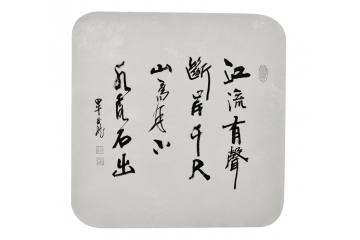 江流有聲
斷岸千尺
山高月小
水落石出